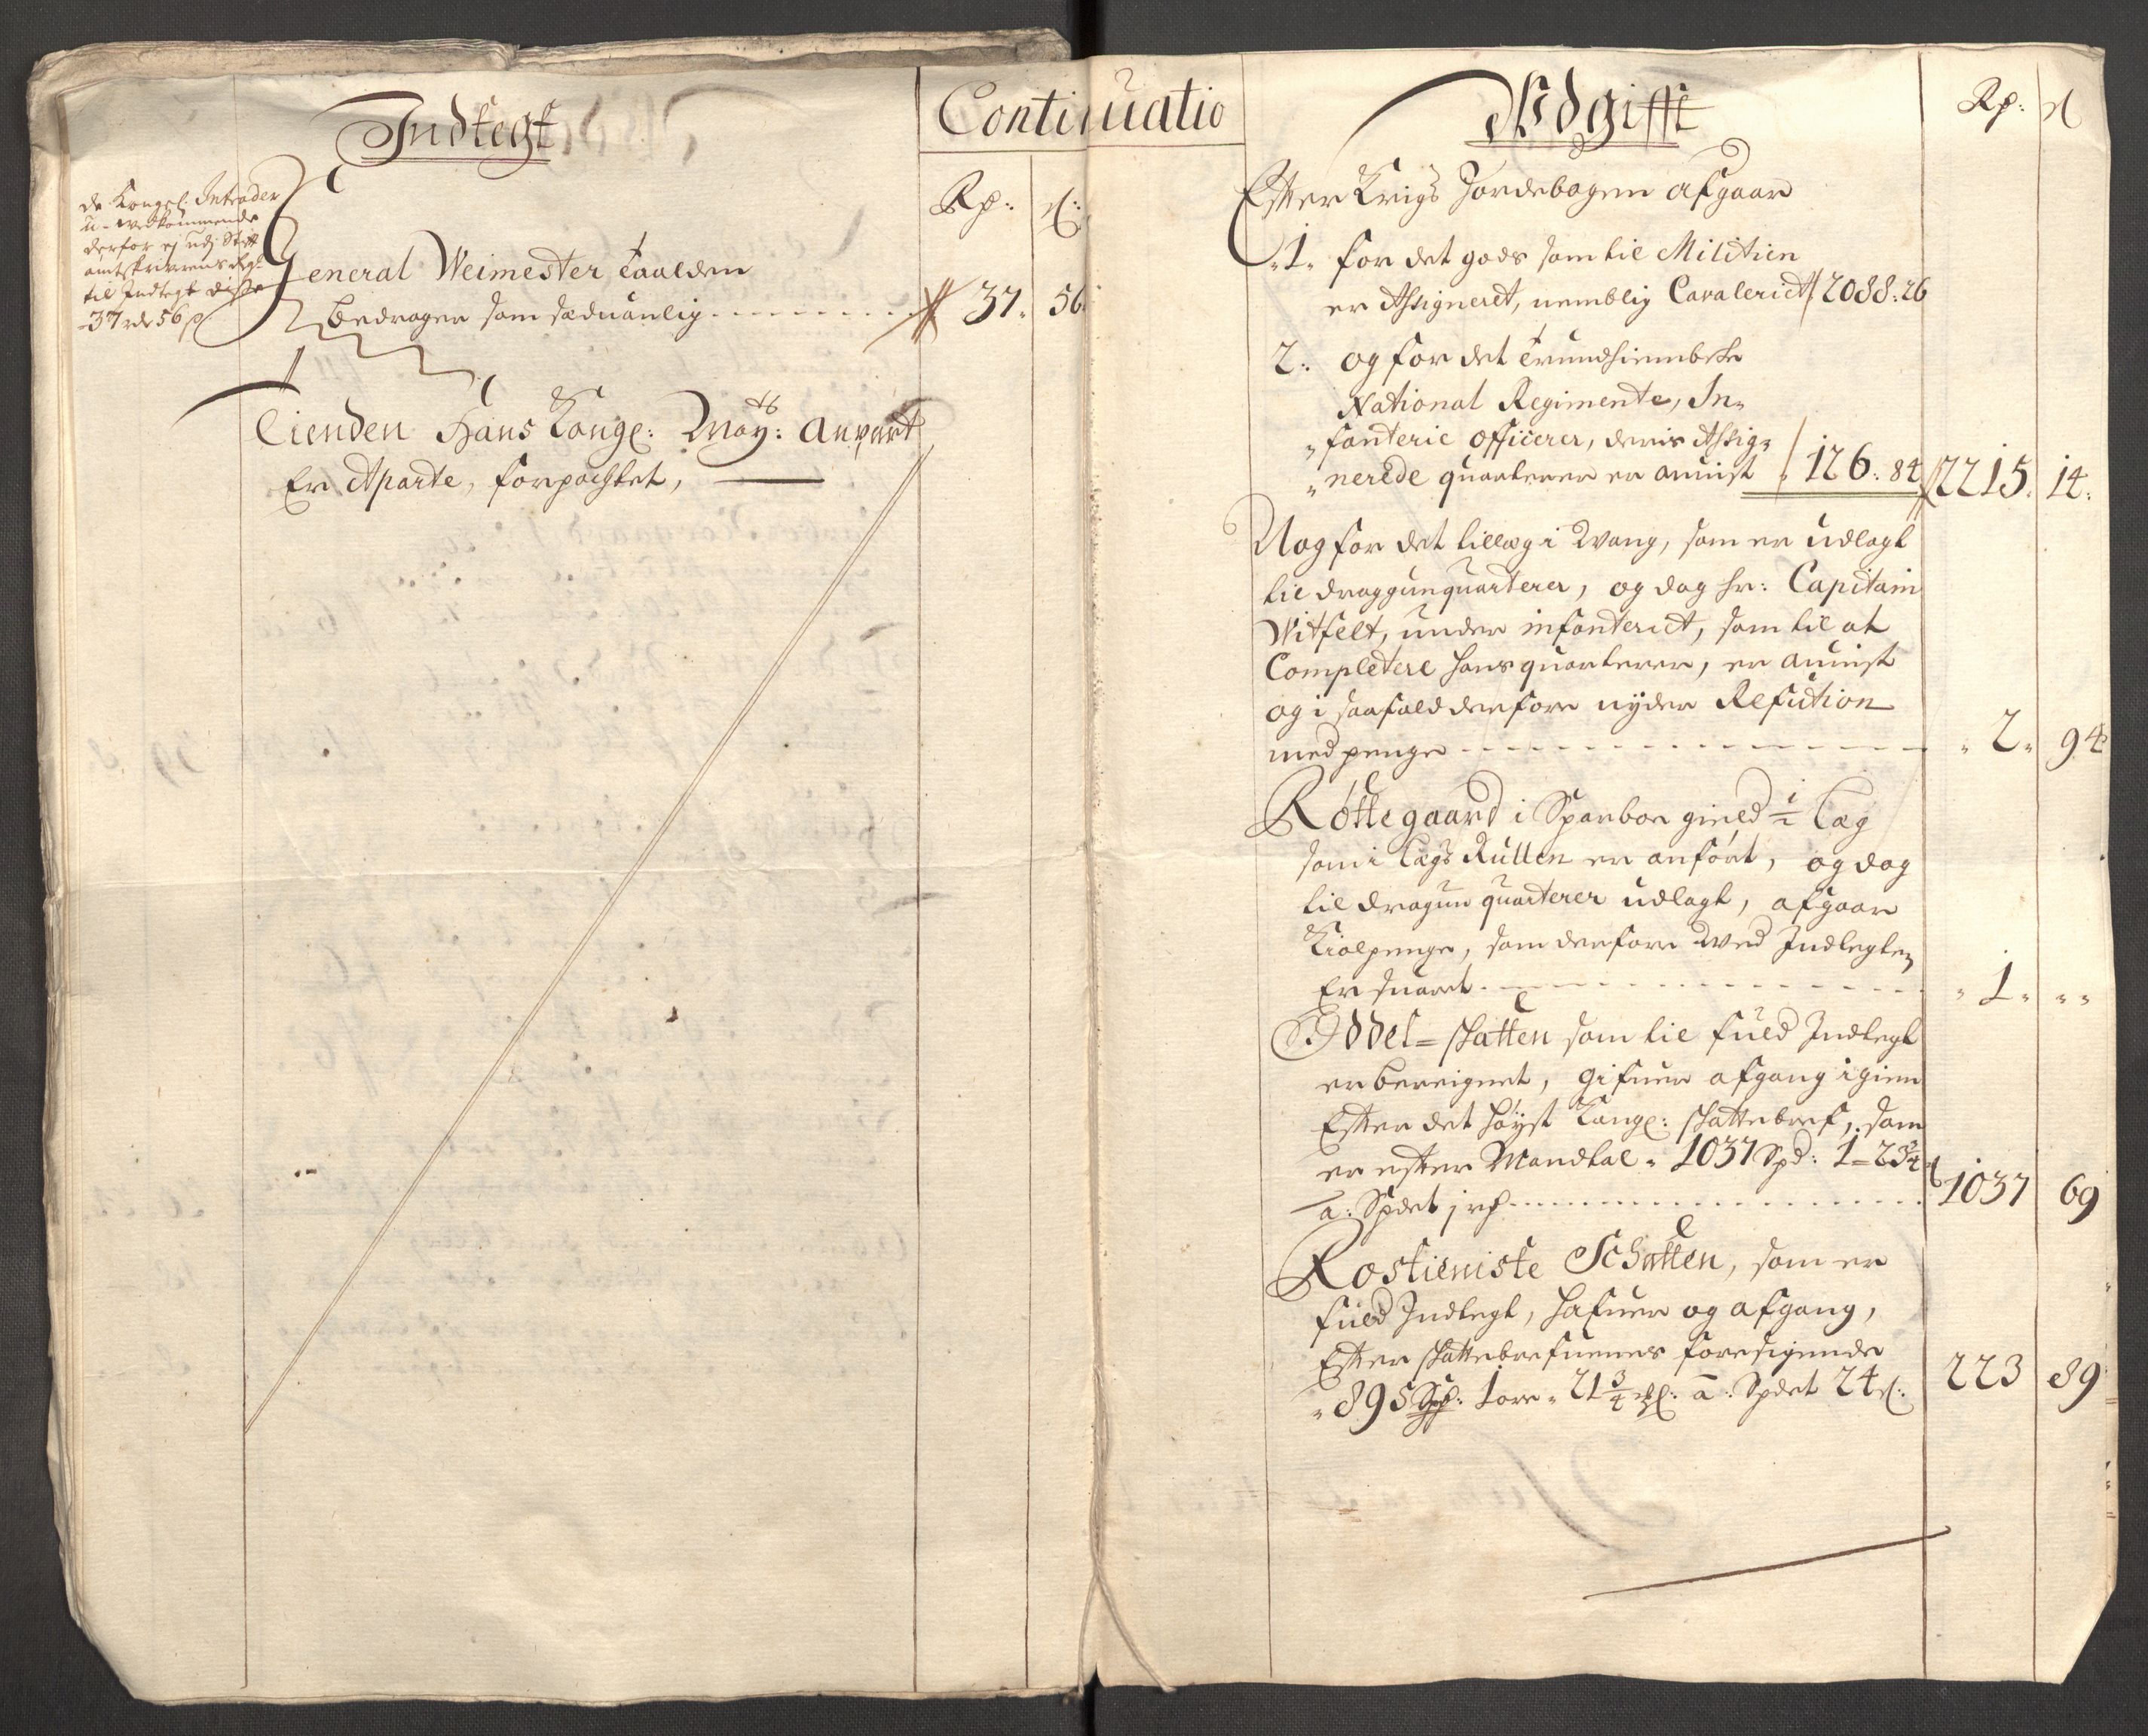 Indtegt
Continuatio
Rp: ß:
de Kongel: Intrader
u-vedkommende
derfor ej udj Stift
amtskrifverens Regt
til Indtegt disse
37 rdr 56 ß
General Weimester Taalden
bedrager som sædvanlig 37. 56.
Tienden Hans Kongl: May: Anpart
Er Aparte, forpachtet,
Udgifft
Rp: ß
Efter Krigs Jordebogen afgaar
1. for det gods som til Militien
er Assigneret, nemblig Cavaleriet 2088:26
2. og for det Trundhiembske
National Regimente, In-
fanterie Officerer, deris Assig-
nerede quarterer er anvist 126:84 2215. 14.
Nog for det tillæg i Wang, som er udlagt
til draggunquarterer, og dog hr: Capitain
Witfelt, under infanteriet, som til at
Completere hans quarterer, er anvist
og i saafald derfore nyder Refution
med penge 2. 94
Røttegaard i Sparboe gield 1/2 Læg
som i Lægs Rullen er anført, og dog
til dragun quarterer udlagt, afgaar
Kiolpenge, som derfore ved Indtegten
Er svaret 1.
Oddel-skatten som til fuld Indtegt
er beregnet, gifver afgang igien
Efter det høyst Kongl: skattebref, som
er efter Mandtal 1037 Spd: 1-23 3/4
a: Spdet 1 rd 1037 69
Rostieniste Schatten, som er
fuld Indtegt, hafver og afgang,
Efter skattebrefvenes foresigende
895 Spd: 1 ore 21 3/4 mkl: a: Spdet 24 ß: 223 89